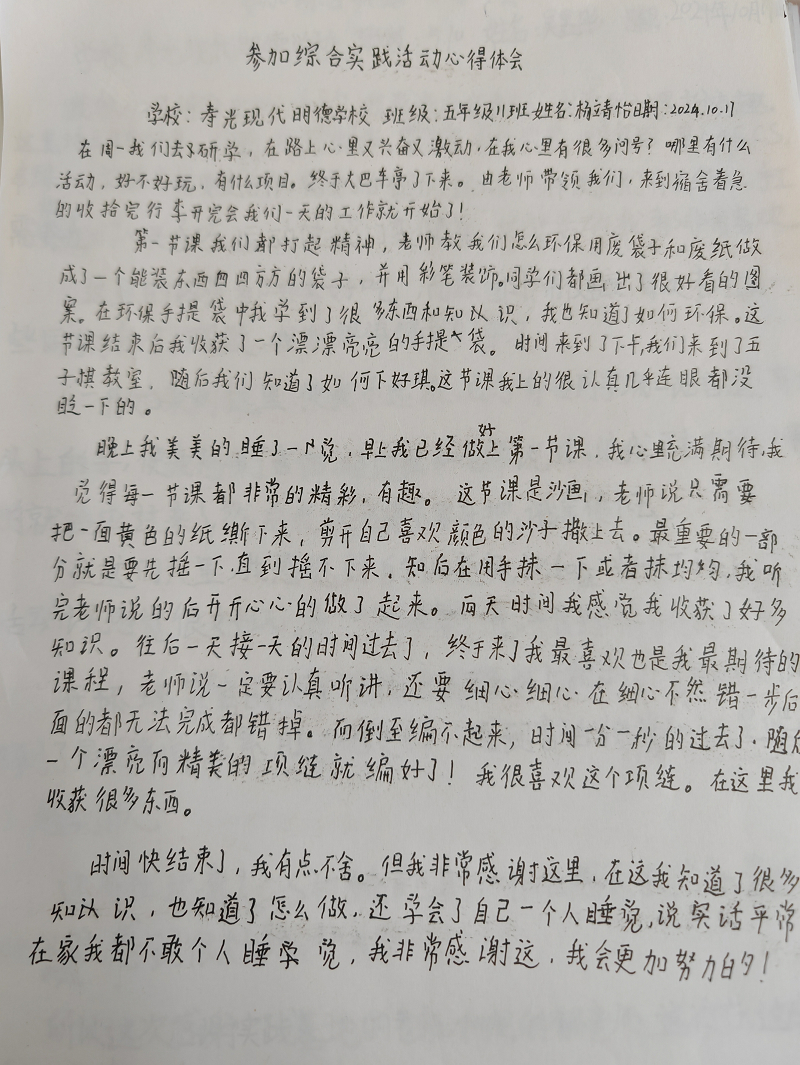 参加综合实践活动心得体会
学校:寿光现代明德学校 班级:五年级11班 姓名:杨靖怡 日期:2024.10.17
在周一我们去了研学,在路上心里又兴奋又激动,在我心里有很多问号?哪里有什么
活动,好不好玩,有什么项目。终于大巴车停了下来。由老师带领我们,来到宿舍着急
的收拾完行李开完会我们一天的工作就开始了!
第一节课我们都打起精神,老师教我们怎么环保用废袋子和废纸做
成了一个能装东西四四方方的袋子,并用彩笔装饰。同学们都画出了很好看的图
案。在环保手提袋中我学到了很多东西和知认识,我也知道了如何环保。这
节课结束后我收获了一个漂漂亮亮的手提袋。时间来到了下午,我们来到了五
子棋教室,随后我们知道了如何下好琪。这节课我上的很认真几乎连眼都没
眨一下的。
晚上我美美的睡了一个觉,早上我已经做好上第一节课,我心里充满期待,我
觉得每一节课都非常的精彩,有趣。这节课是沙画,老师说只需要
把一面黄色的纸撕下来,剪开自己喜欢颜色的沙子撒上去。最重要的一部
分就是要先摇一下,直到摇不下来,知后在用手抹一下或者抹均匀,我听
完老师说的后开开心心的做了起来。两天时间我感觉我收获了好多
知识。往后一天接一天的时间过去了,终于来了我最喜欢也是我最期待的
课程,老师说一定要认真听讲,还要细心细心在细心不然错一步后
面的都无法完成都错掉。而倒至编不起来,时间一分一秒的过去了.随后
一个漂亮而精美的项链就编好了!我很喜欢这个项链。在这里我
收获很多东西。
时间快结束了,我有点不舍。但我非常感谢这里,在这我知道了很多
知认识,也知道了怎么做,还学会了自己一个人睡觉,说实话平常
在家我都不敢个人睡学觉,我非常感谢这,我会更加努力的!